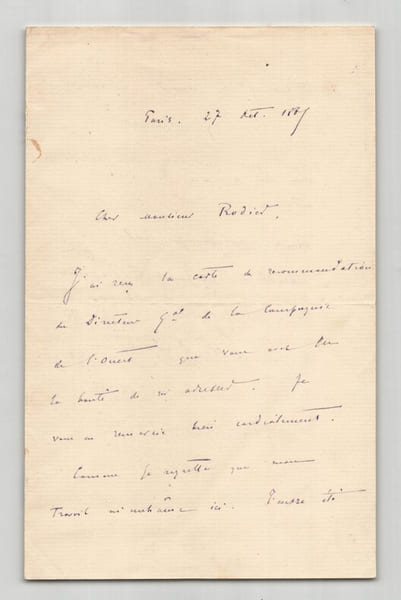 Paris. 27 Oct. 188
Cher Monsieur Rodier,
J'ai reçu la carte de recommandation
du Directeur Gal de la Compagnie
de l'Ouest que vous avez eu
la bonté de m'adresser. Je
vous en remercie bien cordialement.
Comme je regrette que mon
travail m'enchaîne ici. Peut-être été